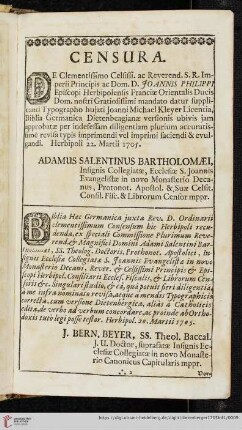 CENSURA.
DE Clementissimo Celsiss. ac Reverend. S. R. Im-
perii Principis ac Dom. D. JOANNIS PHILIPPI
Episcopi Herbipolensis Franciæ Orientalis Ducis
Dom. nostri Gratiosissimi mandato datur suppli-
canti Typographo hujati Joanni Michael Kleyer Licentia,
Biblia Germanica Dietenbergianæ versionis ubivis jam
approbatæ per indefessam diligentiam plurium accuratis-
simè revisa typis imprimendi vel imprimi faciendi & evul-
gandi. Herbipoli 22. Martii 1705.
ADAMUS SALENTINUS BARTHOLOMÆI,
Insignis Collegiatæ, Ecclesiæ S. Joannis
Evangelistæ in novo Monasterio Deca-
nus, Protonot. Apostol. & Suæ Celsit.
Consil. Fisc. & Librorum Censor mppr.
Biblia Hæc Germanica juxta Rev. D. Ordinarii
clementissimum Consensum hic Herbipoli recu-
denda, ex speciali Commissione Plurimum Reve-
rendi & Magnifici Domini Adami Salentini Bar-
SS. Theolog. Doctoris, Prothonot. Apostolici, In-
signis Ecclesiæ Collegiatæ S. Joannis Evangelistæ in novo
Monasterio Decani, Rever. & Celsissimi Principis & Epi-
scopi Herbipol. Consiliarii Eccles. Fiscalis, & Librorum Cen-
soris &c. Singulari studio, & eâ, quâ potuit fieri diligentiâ,
à me infra nominato revisa, atque à mendis Typographicis
correcta, cum versione Dietenbergica, aliàs à Catholicis
edita, de verbo ad verbum concordare, ac proinde ab Ortho-
doxis tutò legi posse testor. Herbipol. 20. Martii 1705.
J. BERN. BEYER, SS. Theol. Baccal.
J. U. Doctor, suprafatæ Insignis Ec-
clesiæ Collegiatæ in novo Monaste-
rio Canonicus Capitularis mppr.